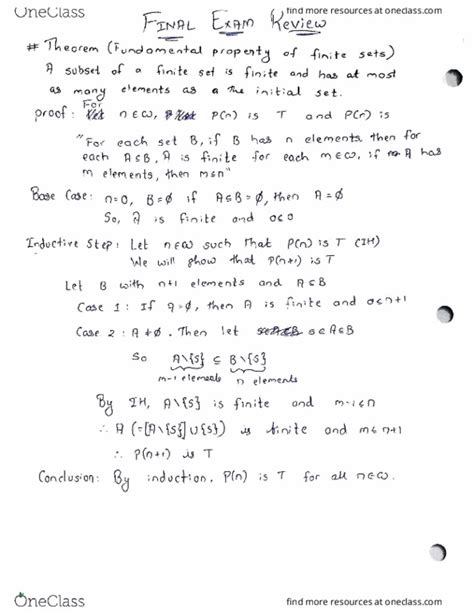 OneClass
find more resources at oneclass.com
FINAL EXAM REVIEW
# Theorem (Fundamental property of finite sets)
A subset of a finite set is finite and has at most
as many elements as the initial set.
proof: For n∈ω, P(n) is T and P(n) is
"For each set B, if B has n elements, then for
each A⊆B, A is finite for each m∈ω, if A has
m elements, then m≤n"
Base Case: n=0, B=∅ if A⊆B=∅, then A=∅
So, A is finite and 0≤0
Inductive Step: Let n∈ω such that P(n) is T (IH)
We will show that P(n+1) is T
Let B with n+1 elements and A⊆B
Case 1: If A=∅, then A is finite and 0≤n+1
Case 2: A≠∅. Then let s∈A⊆B
So A\{s} ⊆ B\{s}
m-1 elements n elements
By IH, A\{s} is finite and m-1≤n
∴ A (=[A\{s}]∪{s}) is finite and m≤n+1
∴ P(n+1) is T
Conclusion: By induction, P(n) is T for all n∈ω.
OneClass
find more resources at oneclass.com